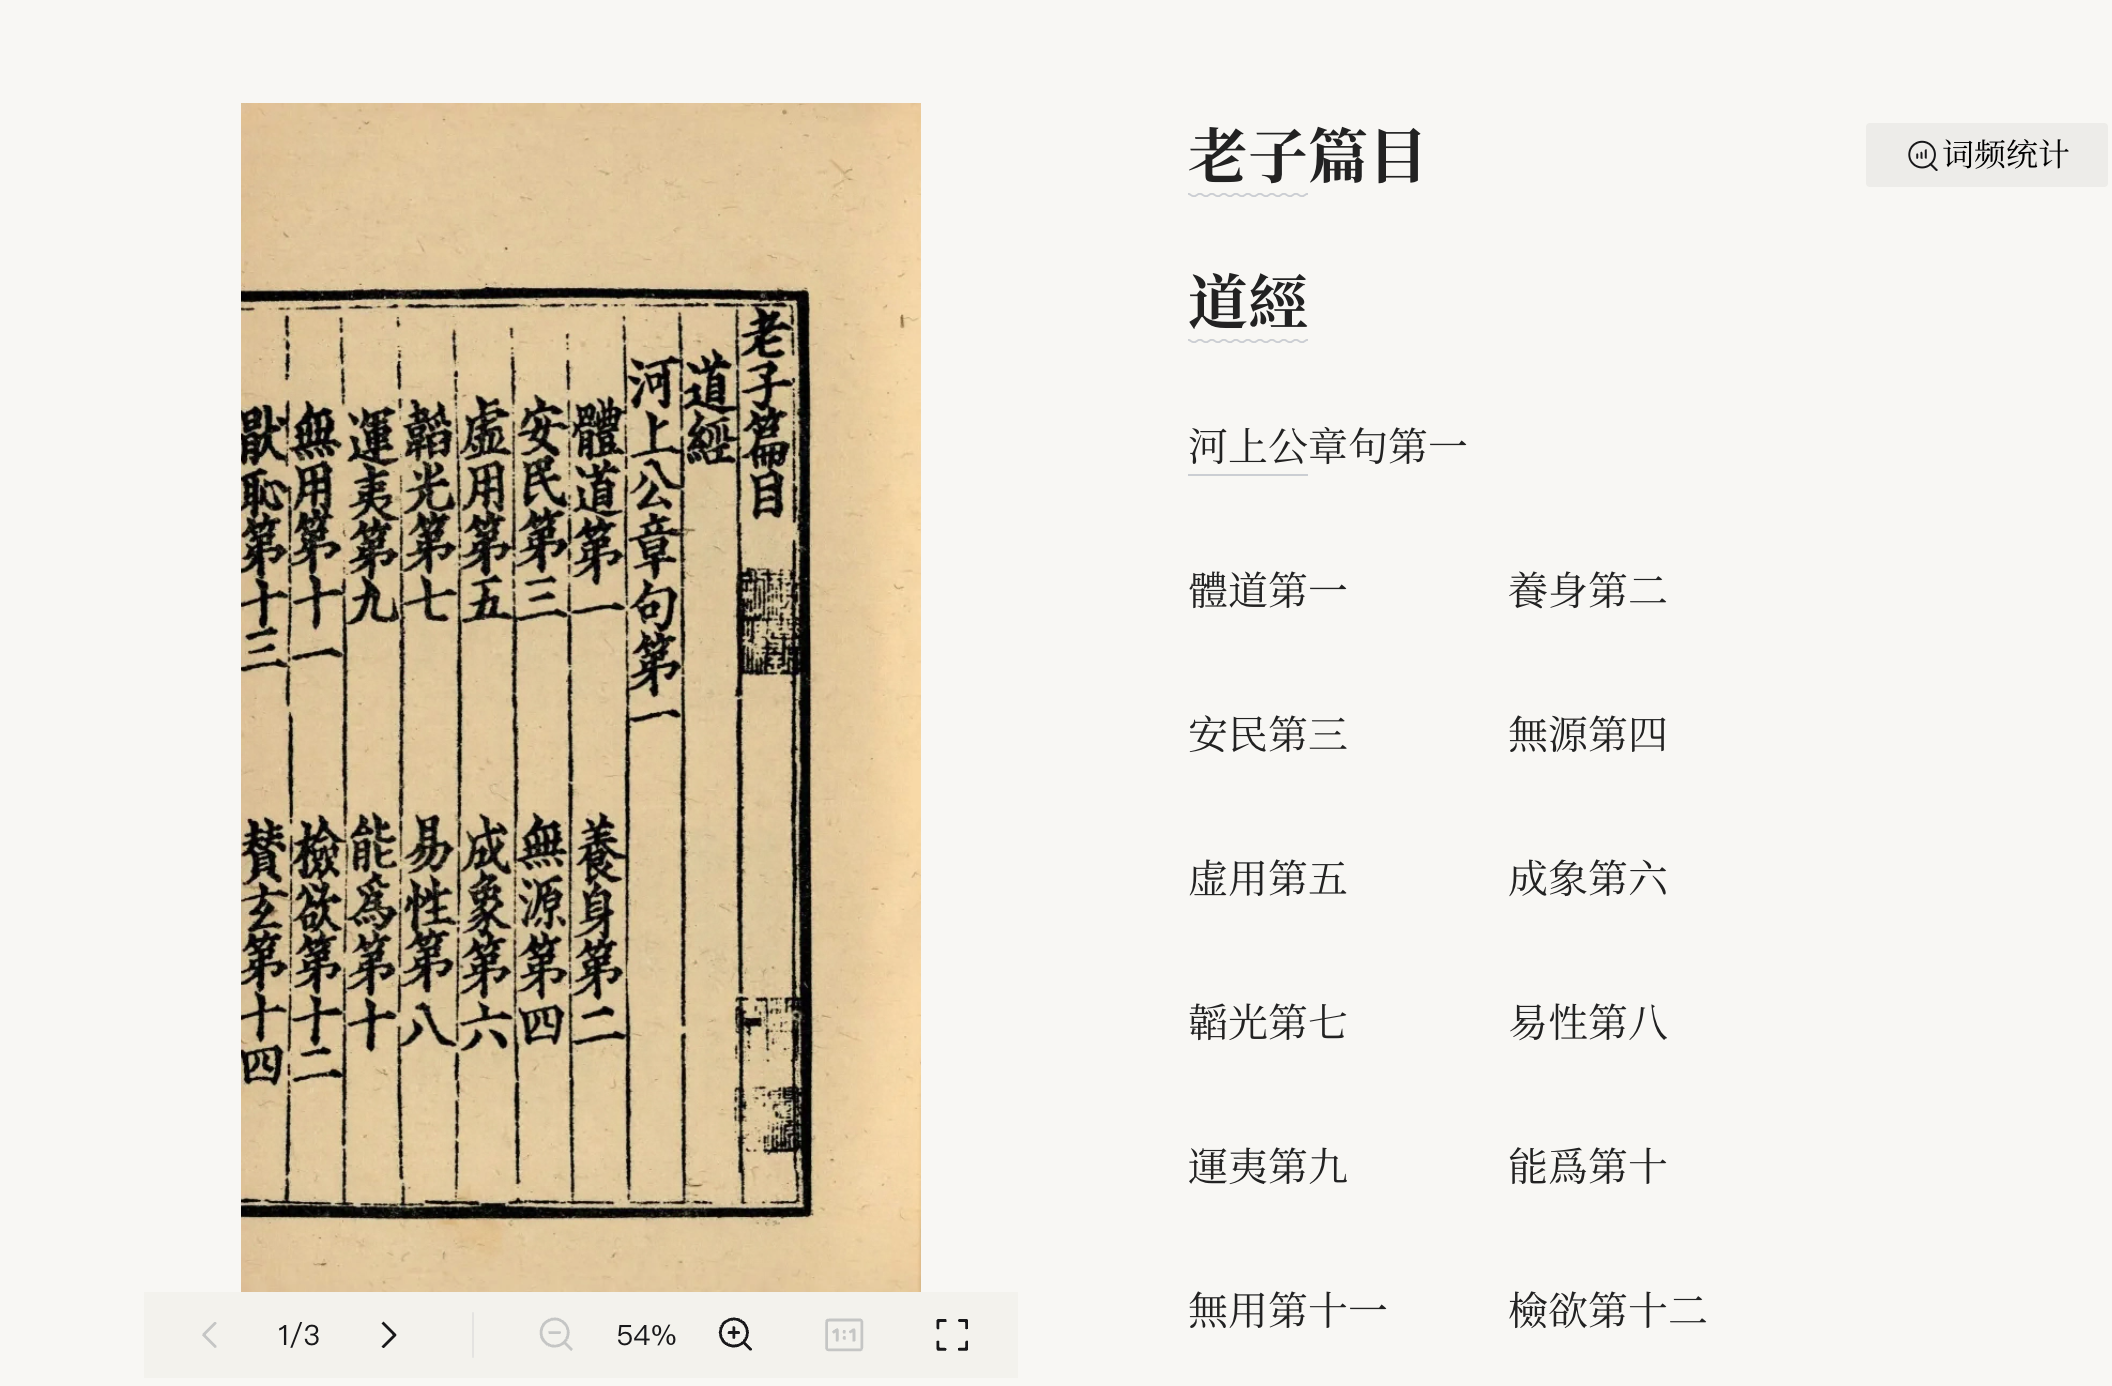 老子篇目
道經
河上公章句第一
體道第一
養身第二
安民第三
無源第四
虚用第五
成象第六
韜光第七
易性第八
運夷第九
能爲第十
無用第十一
檢欲第十二
猒恥第十三
賛玄第十四
1/3
54%
1:1
老子篇目
词频统计
道經
河上公章句第一
體道第一 養身第二
安民第三 無源第四
虚用第五 成象第六
韜光第七 易性第八
運夷第九 能爲第十
無用第十一 檢欲第十二